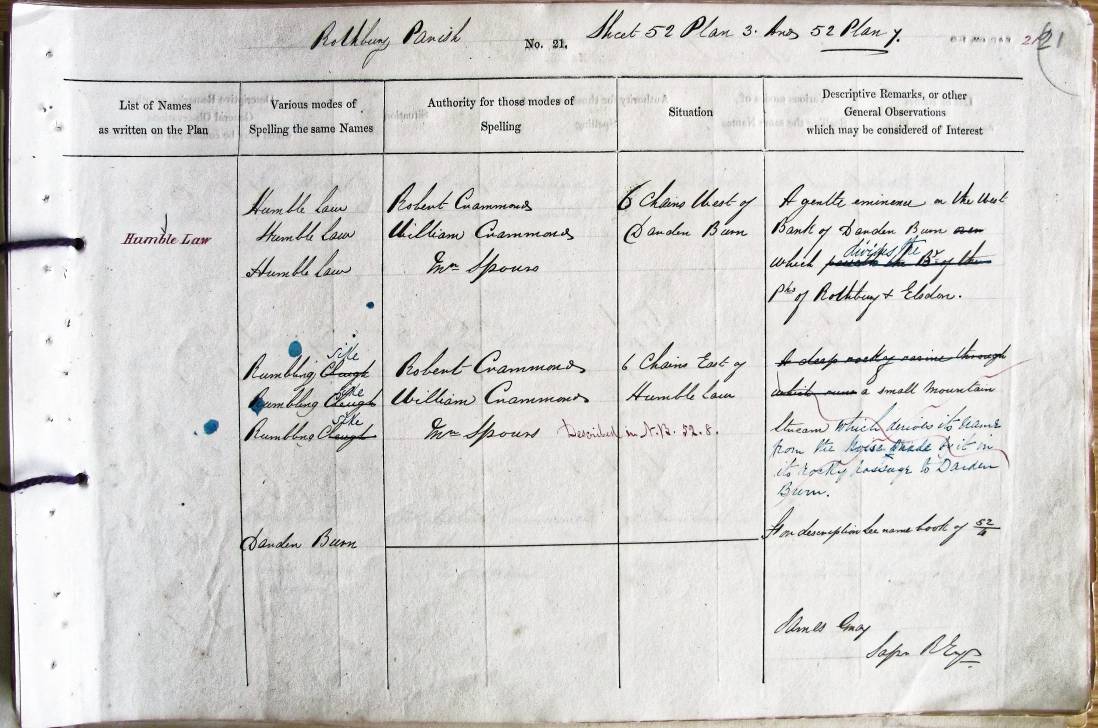 Rothbury Parish No. 21. Sheet 52 Plan 3. And 52 Plan 7. 21
List of Names
as written on the Plan
Various modes of
Spelling the same Names
Authority for those modes of
Spelling
Situation
Descriptive Remarks, or other
General Observations
which may be considered of Interest
Humble Law
Humble Law
Humble Law
Humble Law
Robert Crammond
William Crammond
Mr Spours
6 Chains West of
Darden Burn
A gentle eminence on the West
Bank of Darden Burn
which divides the
Phs of Rothbury & Elsdon.
Rumbling Cleugh sike
Rumbling Cleugh sike
Rumbling Cleugh sike
Robert Crammond
William Crammond
Mr Spours
6 Chains East of
Humble Law
Described in N.B. 52.8.
A deep rocky ravine through
which runs a small mountain
stream which derives its name
from the noise made by it in
its rocky passage to Darden
Burn.
Darden Burn
For description see name book of 52/4
James Gray
Sapr R Eng